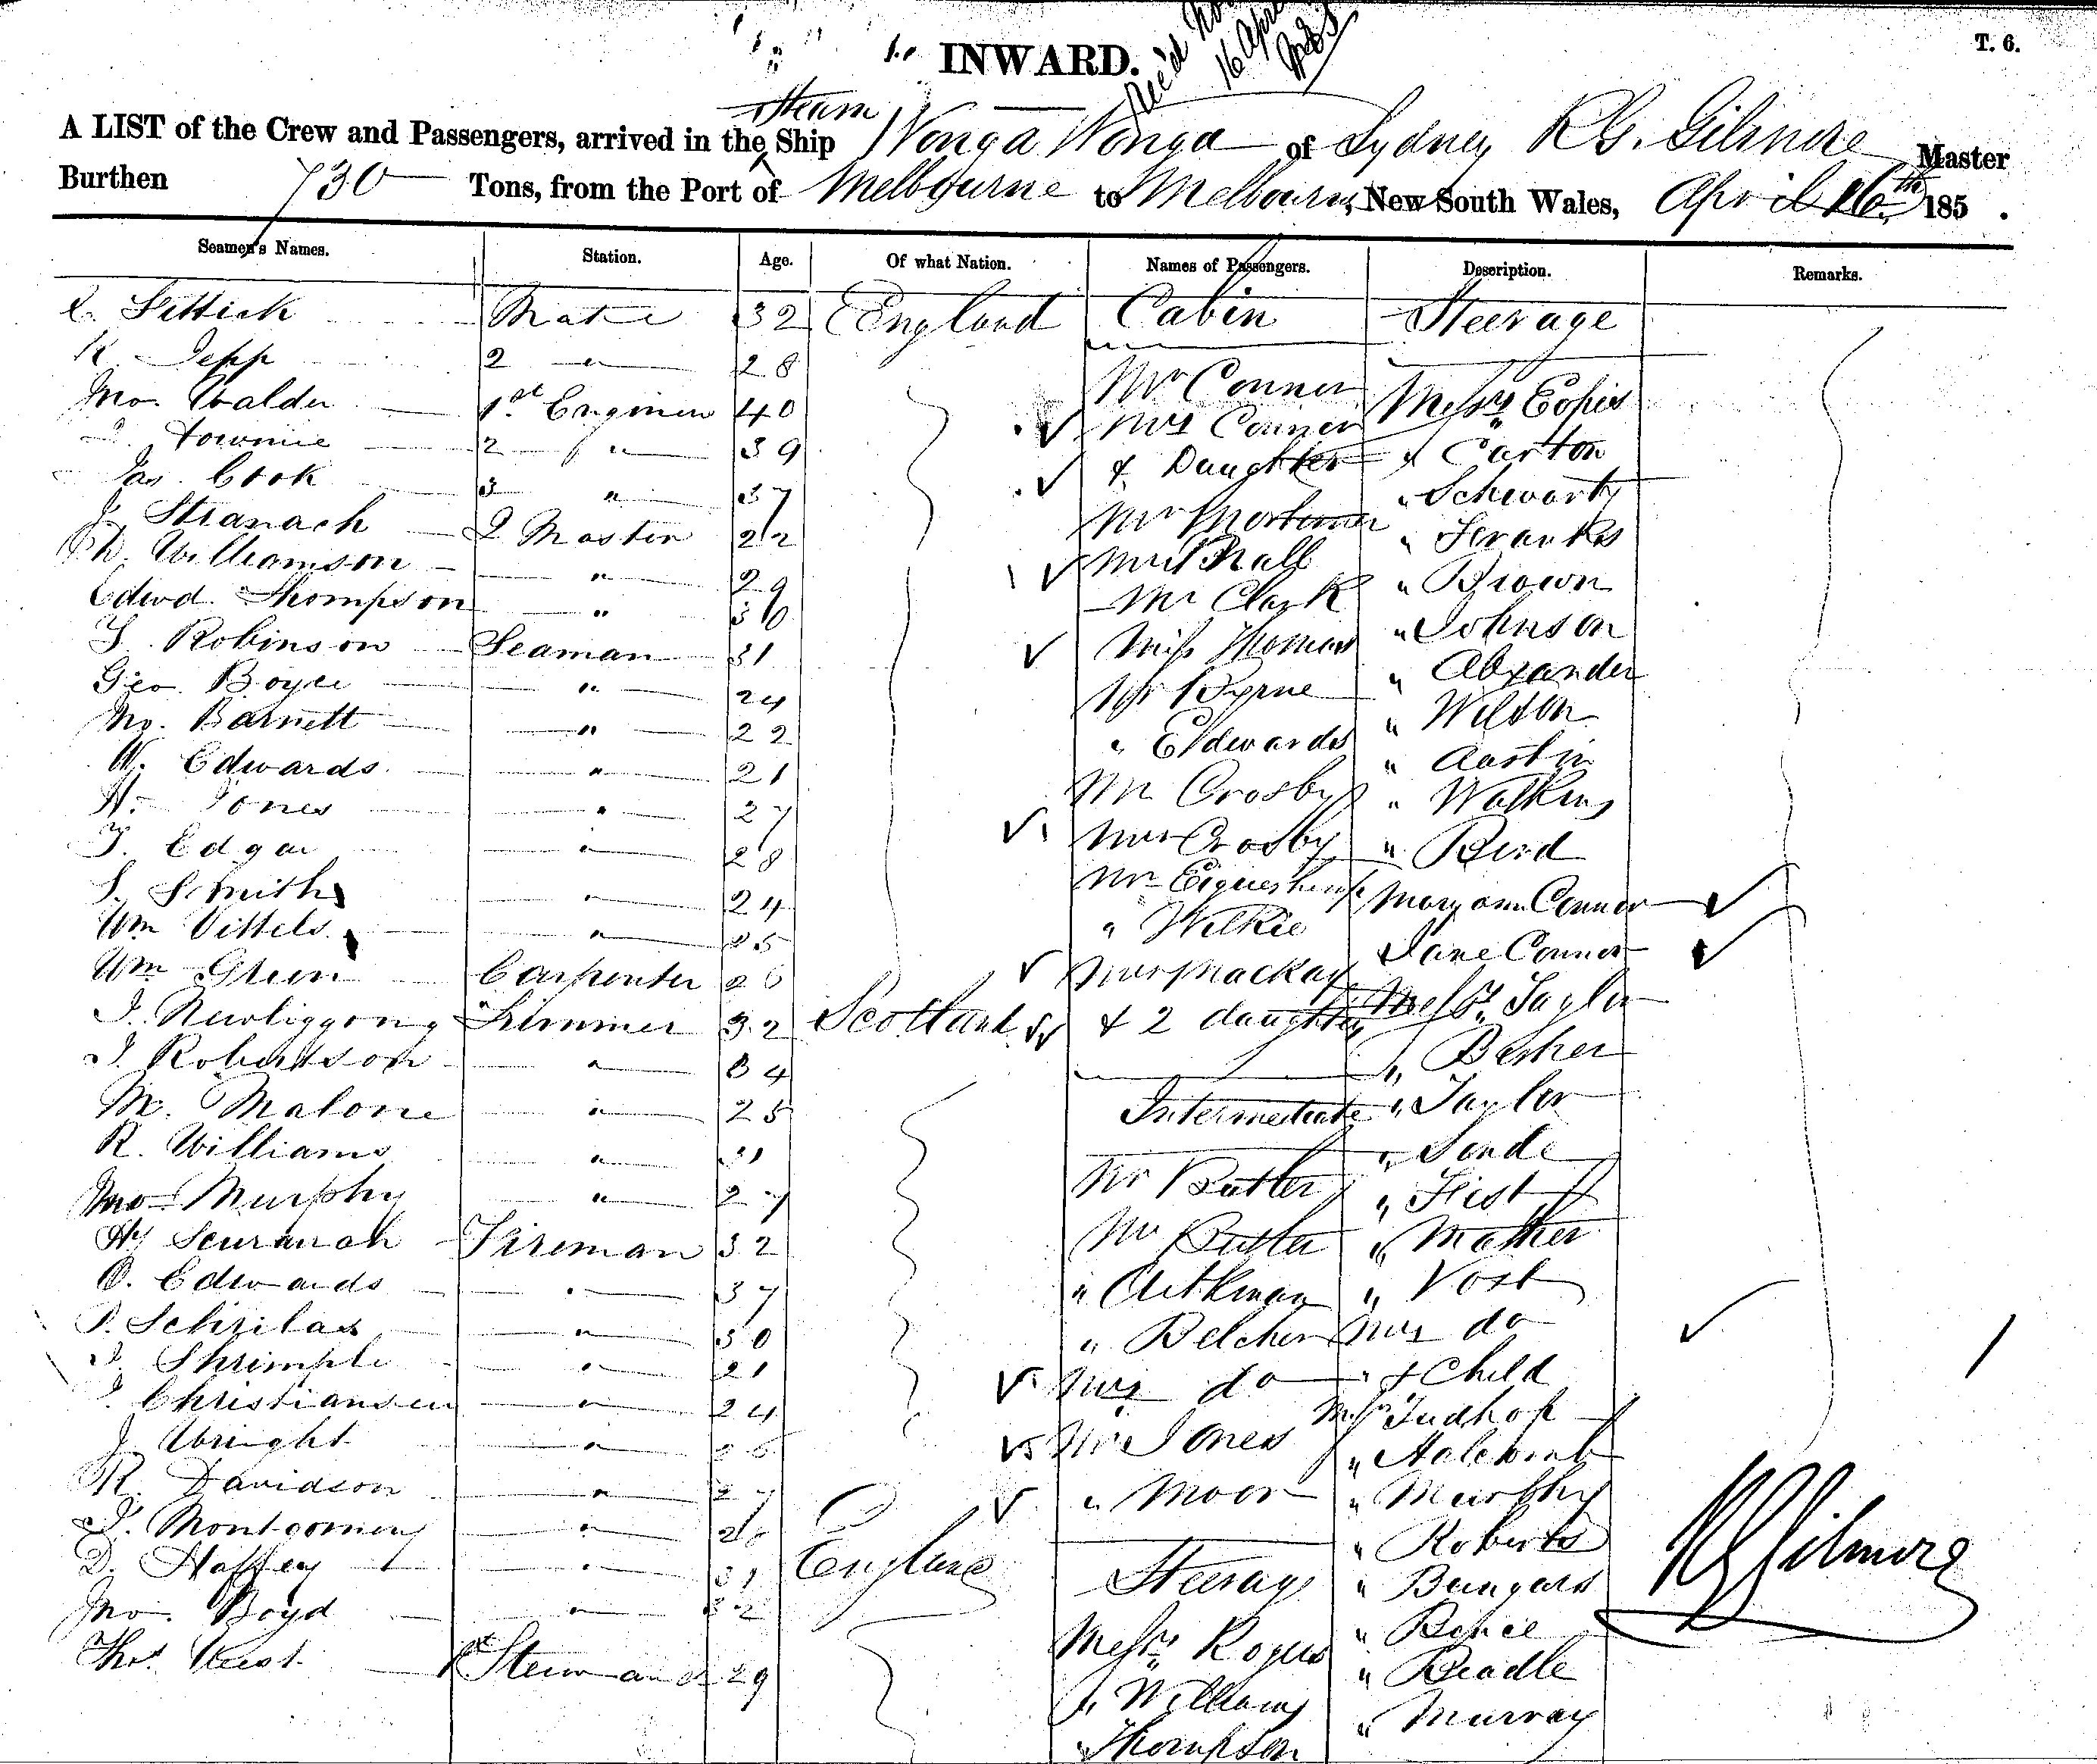 INWARD.
T. 6.
Rec'd
16 Apr
Steam
A LIST of the Crew and Passengers, arrived in the Ship Wonga Wonga of Sydney R G. Gilmore Master
Burthen 730 Tons, from the Port of Melbourne to Melbourne, New South Wales, April 16th 185 .
Seamen's Names. Station. Age. Of what Nation. Names of Passengers. Description. Remarks.
Mate 32 England Cabin Steerage
K. Jepp 2 " 28
Mr Conner Messrs
Jno. Walder 1st Engineer 40
Mrs Conner
Townie 2 " 39
& Daughter " Carton
Jas. Cook 3 " 37
" Schwartz
J Stranach Q Master 22
Mr Mortimer " Franks
Williamson " 29
" Brown
Edwd. Thompson " 30
Mr Clark " Johnson
Robinson Seaman 31
Miss Thomas " Alexander
Geo. Boyce " 24
Mr Byrne " Wilson
Jno. Barnett " 22
" Edwards " Austin
W. Edwards " 21
Mr Crosby " Watkins
H. Jones " 27
Mrs Crosby " Bird
T. Edgar " 28
Mr
S. Smith " 24
Mary ann Conner
" Wilkie
Wm Vittels "
Jane Conner
Wm Green Carpenter 26
Mrs Mackay Messrs Taylor
J. Newbiggong Trimmer 32 Scotland & 2 daughters
J. Robertson " 34
" Barker
M. Malone " 25
Intermediate " Taylor
R. Williams "
Mr Butler
Jno Murphy " 27
" Fist
Hy Fireman 32
Mr Butler " Mather
O. Edwards " 37
" Aitkman " Vost
P. Schrilax " 30
" Belcher Mrs do
J. Shrimpli " 21
Mrs do " & Child
Christiansen " 24
J Wright " 26
Mr Jones " Holcomb
R. Davidson " 27
" Moor " Murphy
J. Montgomery "
England " Roberts
D. Haffey "
Steerage " Bungard
Jno. Boyd " 32
Messrs Rogers
Thos. 1st Steward 29
" Beadle
" Williams
" Murray
" Thompson
R G Gilmore